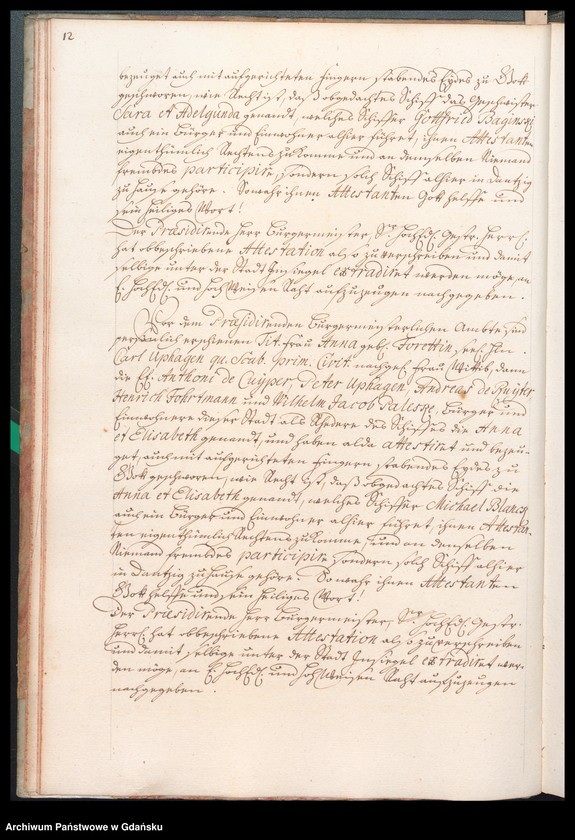 12
bezeuget auch mit aufgerichteten Fingern stabendes Eydes zu Gott
geschworen, wie Rechtist, daß obgedachtes Schiff das Geschwister
Sara et Adelgunda genandt, welches Schiffer Gottfried Baginski
auch ein Bürger und Einwohner alhier führet, ihnen Attestanten
eigenthümlich Rechtens zukomme und an demselben Niemand
frembdes participire, sondern solch Schiff alhier in Dantzig
zu Hause gehöre. So wahr ihnen Attestanten Gott helffe und
sein heiliges Wort!
Der Præsidirende Herr Bürgermeister, Sr. HochEdl. Gestr. Herrl.
hat obbeschriebene Attestation also zu verschreiben und damit
selbige unter der Stadt Insiegel extradiret werden möge, an
E. HochEdl. und HochWeisen Raht aufzuzeugen nachgegeben.
Vor dem Præsidirenden Bürgermeisterlichen Ambte sind
persönlich erschienen Tit. Frau Anna geb. Forettin, seel. Hn.
Carl Uphagen qu. Scab. prim. Civit. nachgel. Frau Wittib, dann
die HE. Anthoni de Cuyper, Peter Uphagen, Andreas de Ruyter
Henrich Fohrtmann und Wilhelm Jacob Paleske, Bürger und
Einwohnere dieser Stadt als Rhedere des Schiffes die Anna
et Elisabeth genandt, und haben alda attestiret und bezeu-
get, auch mit aufgerichteten Fingern stabendes Eydes zu
Gott geschworen, wie Recht ist, daß obgedachtes Schiff die
Anna et Elisabeth genandt, welches Schiffer Michael Blanck
auch ein Bürger und Einwohner alhier führet, ihnen Attestan-
ten eigenthümlich Rechtens zukomme, und an demselben
Niemand frembdes participire sondern solch Schiff alhier
in Dantzig zu Hause gehöre. So wahr ihnen Attestanten
Gott helffe und sein heiliges Wort!
Der Præsidirende Herr Bürgermeister, Sr. HochEdl. Gestr.
Herrl. hat obbeschriebene Attestation also zu verschreiben
und damit selbige unter der Stadt Insiegel extradiret wer-
den möge, an E. HochEdl. und HochWeisen Raht aufzuzeugen
nachgegeben.
Archiwum Państwowe w Gdańsku